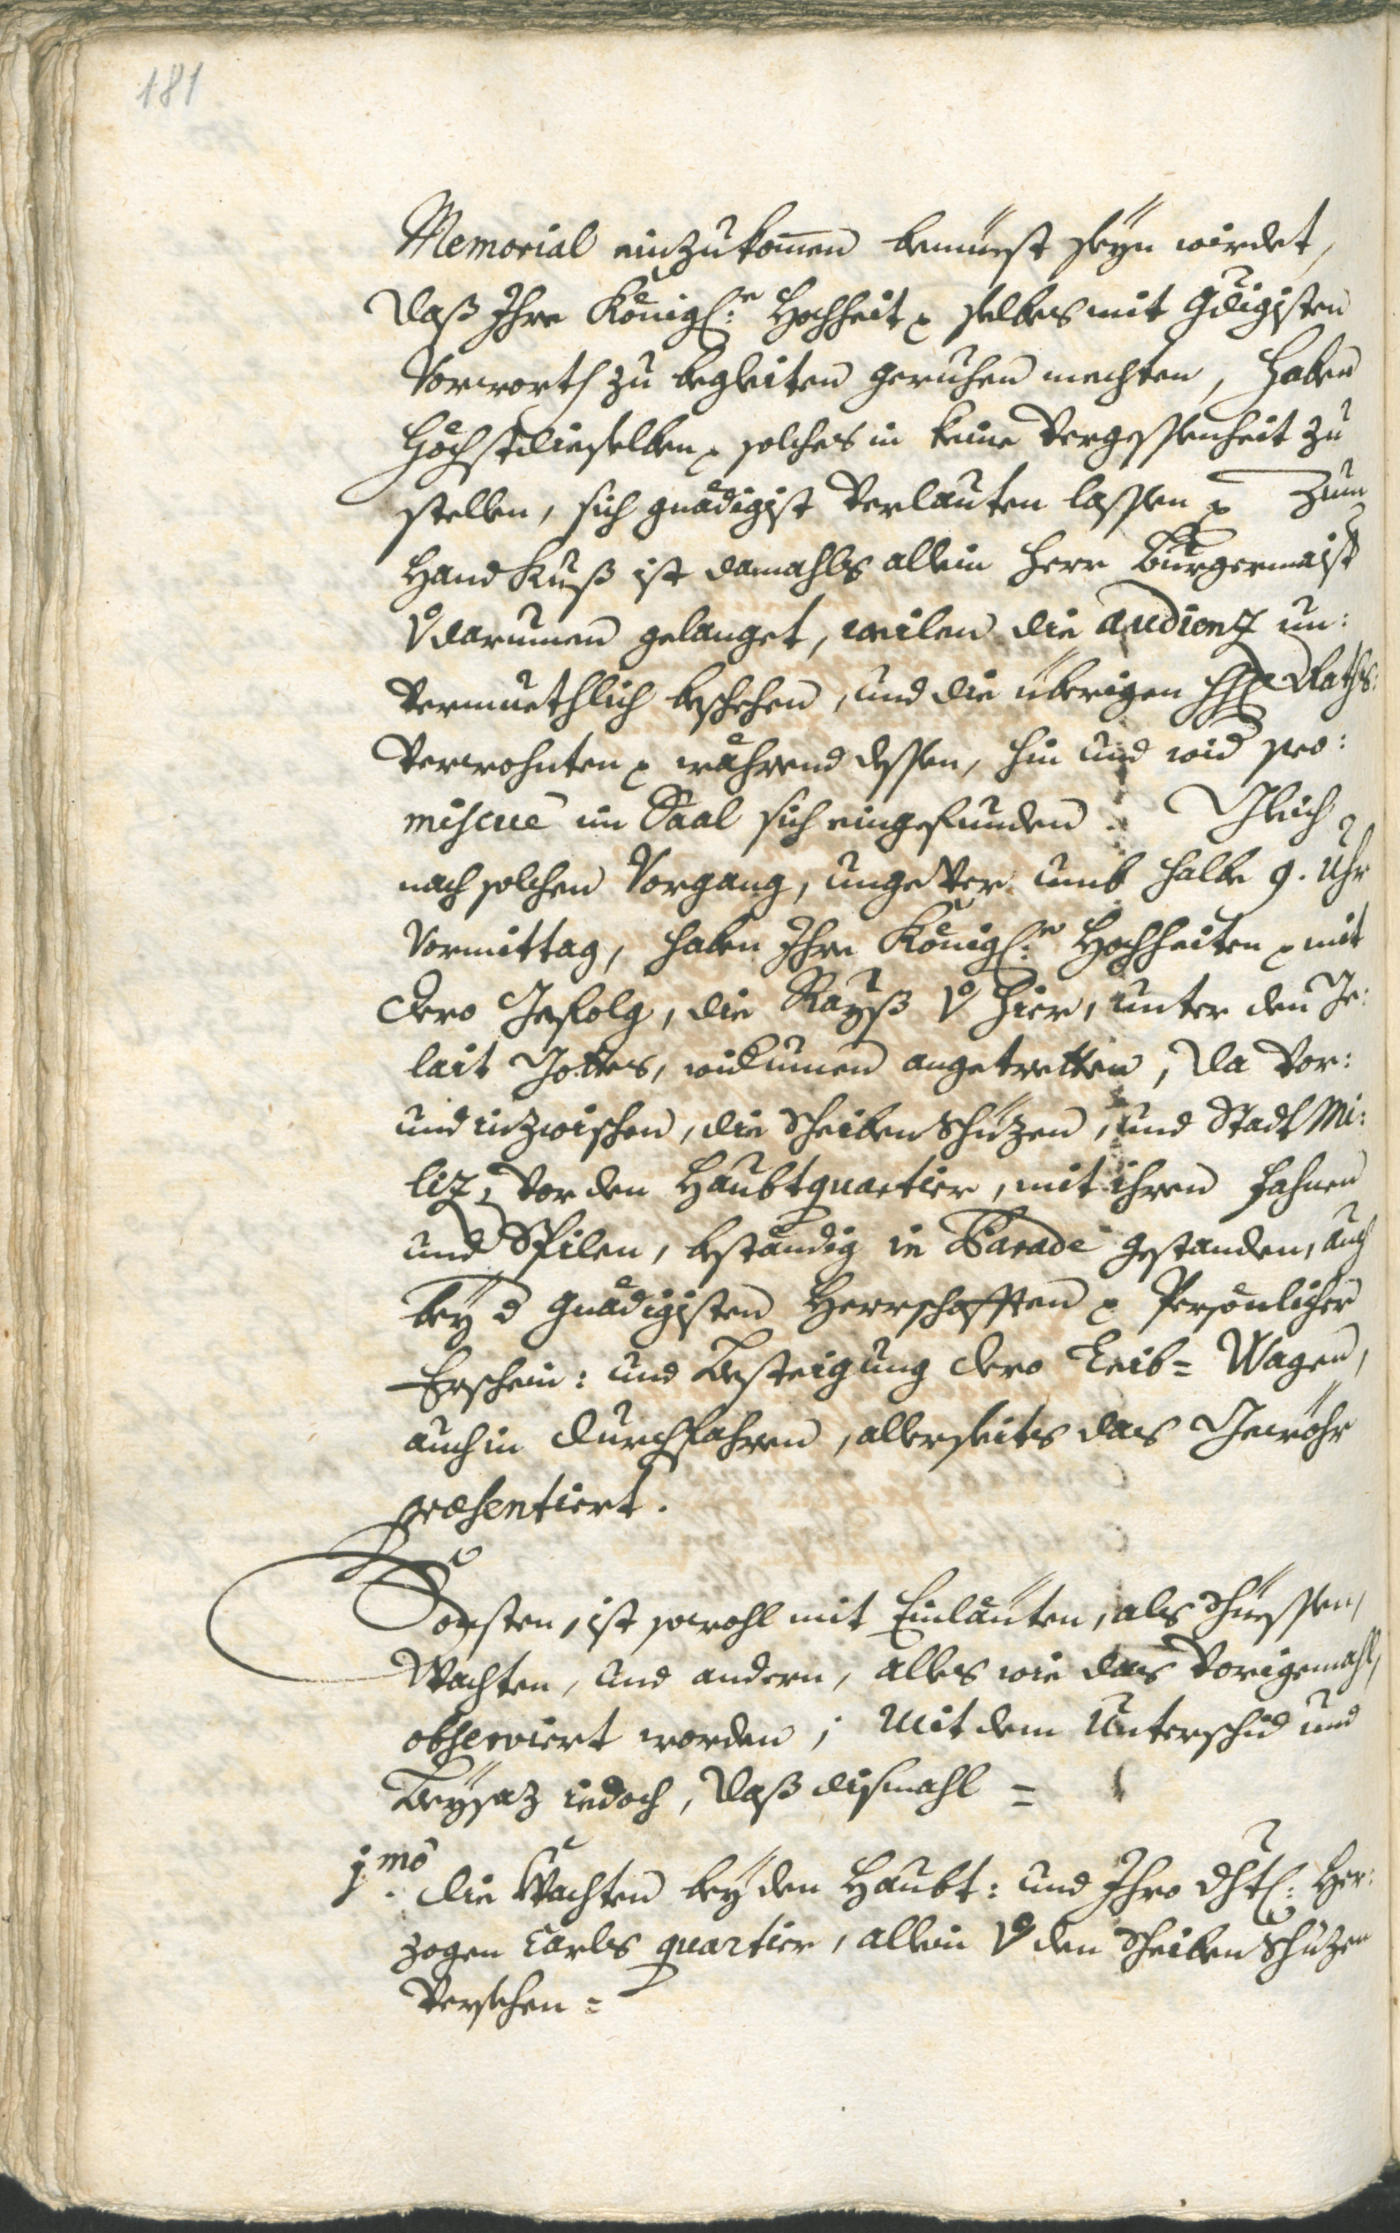 181
Memorial einzukom̄en bemüesst seÿn wirdet,
daß Ihre Königl:e Hochheit p. selbes mit Gdigisten
Vorworth zu begleiten geruhen mechten, haben
höchst dieselben p. solches in keine Vergessenheit zu
stellen, sich gnädigist verlauten lassen p Zum
Hand Kuß ist damahls allein Herr Burgermaist
darumen gelanget, weilen die audienz un:
vermuethlich beschehen, und die überigen HH Raths:
verwohnten p. während dessen, hin und wid pro:
miscuè im Saal sich eingefunden. Gleich
nach solchen Vorgang, ungever umb halbe 9. Uhr
Vormittag, haben Ihre Königl:e Hochheiten p. mit
dero Gefolg, die Rayß v hier, unter den Ge:
lait Gottes, widumen angetretten, da vor:
und inzwischen, die Scheiben Schüzen, und Stadt Mi:
liz, vor den Haubtquartier, mit ihren Fahnen
und Spilen, beständig in Parade gestanden, auch
beÿ d Gnädigisten Herrschafften p. Persönlicher
Erschein: und Besteigung dero Leib= Wagen,
auch in durchfahren, allerseits das Gewöhr
præsentiert.
Sonsten, ist sowohl mit Einläuten, als Schüessen,
Wachten, und andern, alles wie das vorigemahl,
observiert worden; Mit dem Unterschid und
Beÿsaz iedoch, daß dismahl =
1.mo die Wachten beÿ den Haubt: und Ihro dhtl: Her:
zogen Carls quartier, allein v den Scheiben Schüzen
versehen =